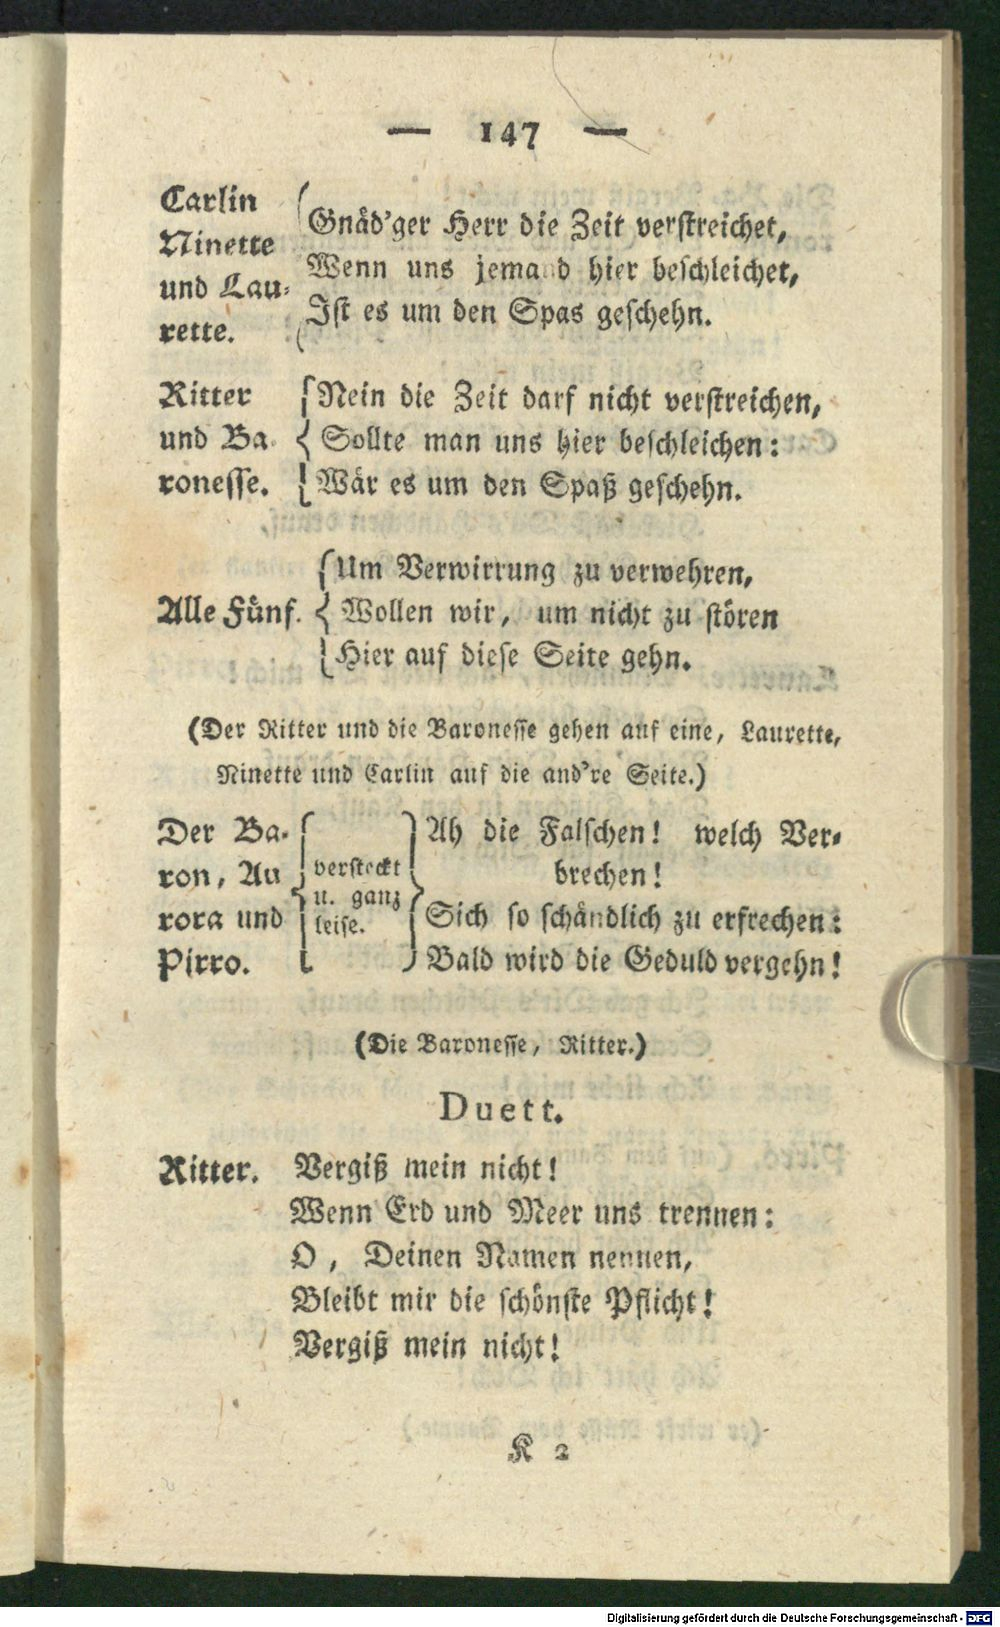 — 147 —
Carlin
Ninette
und Lau-
rette.
Gnäd'ger Herr die Zeit verstreichet,
Wenn uns jemand hier beschleichet,
Ist es um den Spas geschehn.
Ritter
und Ba-
ronesse.
Nein die Zeit darf nicht verstreichen,
Sollte man uns hier beschleichen:
Wär es um den Spaß geschehn.
Alle Fünf.
Um Verwirrung zu verwehren,
Wollen wir, um nicht zu stören
Hier auf diese Seite gehn.
(Der Ritter und die Baronesse gehen auf eine, Laurette,
Ninette und Carlin auf die and're Seite.)
Der Ba-
ron, Au
rora und
Pirro.
versteckt
u. ganz
leise.
Ah die Falschen! welch Ver-
brechen!
Sich so schändlich zu erfrechen:
Bald wird die Geduld vergehn!
(Die Baronesse, Ritter.)
Duett.
Ritter. Vergiß mein nicht!
Wenn Erd und Meer uns trennen:
O, Deinen Namen nennen,
Bleibt mir die schönste Pflicht!
Vergiß mein nicht!
K 2
Digitalisierung gefördert durch die Deutsche Forschungsgemeinschaft - DFG